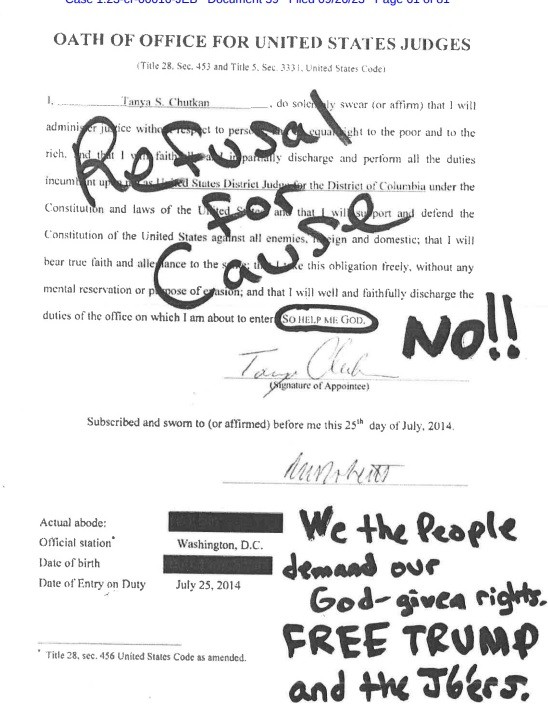 Case 1:23-cr-00016-JEB Document 59 Filed 09/26/23 Page 61 of 81
OATH OF OFFICE FOR UNITED STATES JUDGES
(Title 28, Sec. 453 and Title 5, Sec. 3331, United States Code)
I, Tanya S. Chutkan, do solemnly swear (or affirm) that I will
administer justice without respect to persons, and do equal right to the poor and to the
rich, and that I will faithfully and impartially discharge and perform all the duties
incumbent upon me as United States District Judge for the District of Columbia under the
Constitution and laws of the United States; and that I will support and defend the
Constitution of the United States against all enemies, foreign and domestic; that I will
bear true faith and allegiance to the same; that I take this obligation freely, without any
mental reservation or purpose of evasion; and that I will well and faithfully discharge the
duties of the office on which I am about to enter. SO HELP ME GOD.
Refusal
for
Cause
NO!!
(Signature of Appointee)
Subscribed and sworn to (or affirmed) before me this 25th day of July, 2014.
Actual abode:
Official station* Washington, D.C.
Date of birth
Date of Entry on Duty July 25, 2014
We the People
demand our
God-given rights.
FREE TRUMP
and the J6ers.
* Title 28, sec. 456 United States Code as amended.